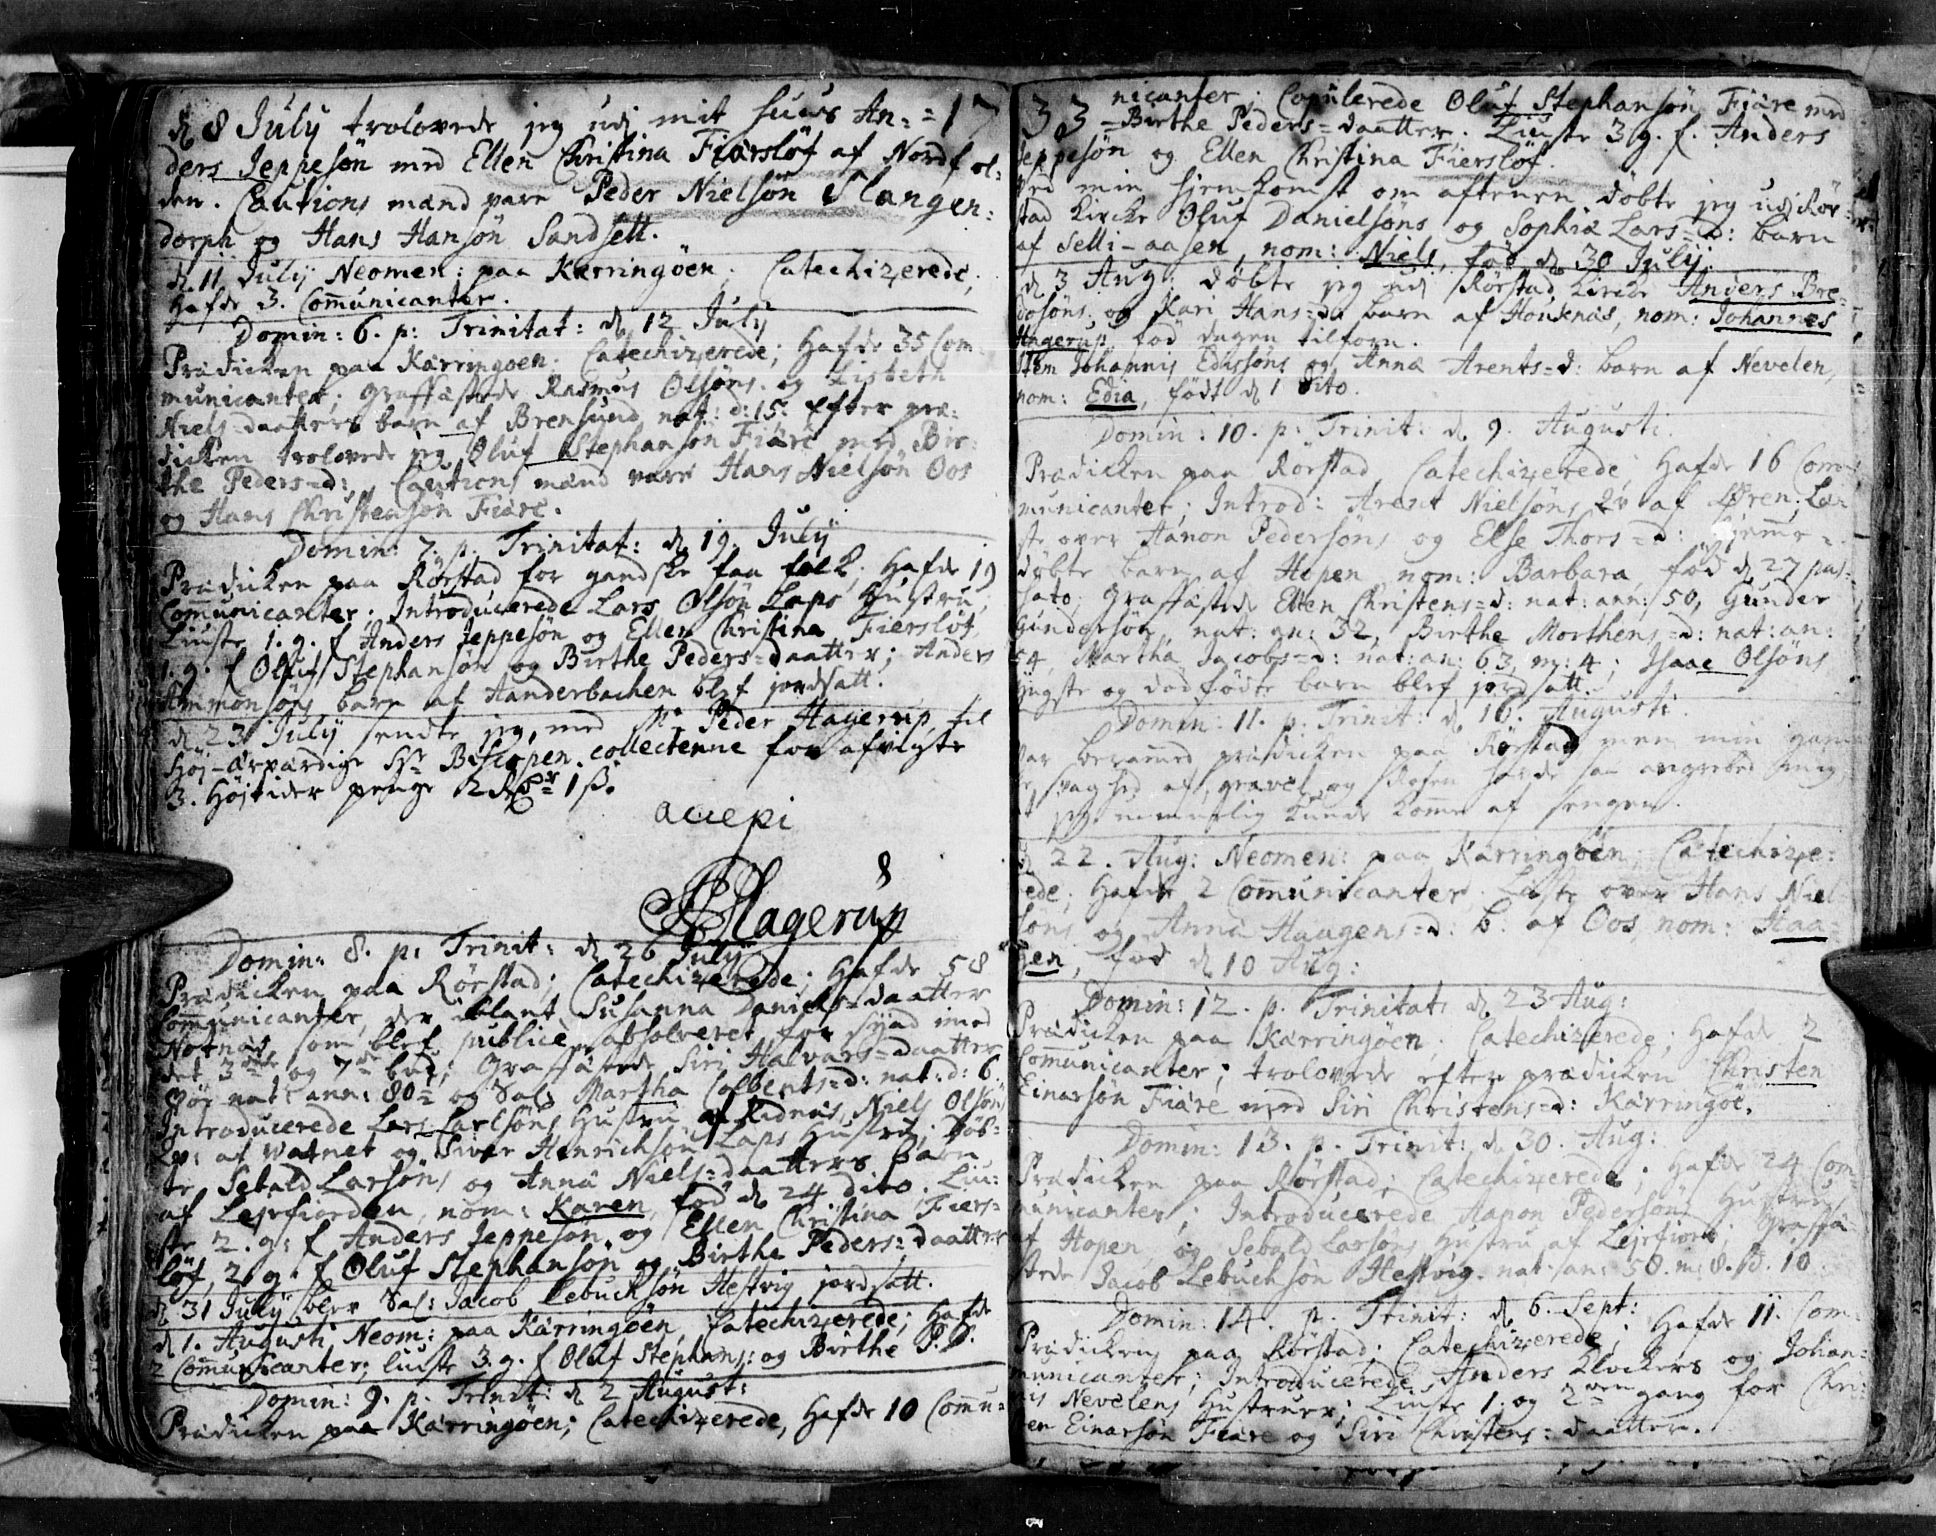 d 8 July trolovede jeg udj mit huus An: = 17
ders Jeppesøn med Ellen Christina Fiersløf af Nordfol:
den. Cautions mænd vare Peder Nielsøn Slangen:
dorph og Hans Hansøn Sandsett.
d. 11 July Neomen: paa Kærringøen; Catechizerede;
Hafde 3. Com̅unicanter.
Domin: 6. p: Trinitat: d 12 July
Prædicken paa Kærringøen; Catechizerede; Hafde 35 Com
municanter; Graffæstede Rasmus Olsøns og Lisbeth
Niels=daatters barn af Brensund nat: d: 15: Efter præ:
dicken trolovede jeg Oluf Stephansøn Fiære med Bir:
the Peders=d:, Cautions mænd vare Hans Nielsøn Oos
og Hans Christensøn Fiære.
Domin: 7. p. Trinitat: d 19. July
Prædicken paa Rørstad for gandske faa folk; Hafde 19
Com̅unicanter; Introducerede Lars Olsøn Laps Hustru;
Liuste 1. g. f Anders Jeppesøn og Ellen Christina Fiersløf,
1. g. f Oluf Stephansøn og Birthe Peders=daatter; Anders
Ammonsøns barn af Aanderbachen blef jordsatt.
d 23 July sendte jeg, med Mr Peder Hagerup til
Høj-ærværdige Hr Biscopen, collectenne for afvigte
3. Højtider penge 2 dlr 1 ß.
accepi
Hagerup
Domin: 8. p: Trinit: d 26 July
Prædicken paa Rørstad; Catechizerede; Hafde 58
Com̅unicanter, der iblant Susanna Daniels=daatter
Notnæs som blef publice absolveret for synd imod
det 3die og 7de bud; Graffæstede Siri Halvars=daatter
nat: ann: 80½ og Sal: Martha Colbents=d: nat: d: 6
Introducerede Lars Carlsøns Hustru af Kidnæs, Niels Olsøns
af Watnet og Siver Henrichsøn Laps Hustru; Døb-
te Sebald Larsøns og Anna Niels=daatters barn
af Lejrfiorden, nom: Karen, fød d 24 dito. Liu:
ste 2. g: f Anders Jeppesøn og Ellen Christina Fiers-
løf, 2. g. f Oluf Stephansøn og Birthe Peders=daatter
d 31 July blev Sal: Jacob Lebucksøn Hestvig jordsatt.
d 1. Augusti Neom: paa Kærringøen, Catechizerede; Hafde
2 Com̅unicanter; liuste 3. g. f Oluf Stephans: og Birthe P: D.
Domin: 9. p. Trinit: d 2 August:
Prædicken paa Kærringøen; Catechizerede, Hafde 10 Com̅u=
33 nicanter; Copulerede Oluf Stephansøn Fiære med
Birthe Peders=daatter. Liuste 3. g. f. Anders
Jeppesøn og Ellen Christina Fiersløf.
Ved min hjemkomst om aftenen døbte jeg udj Rør=
stad Kircke Oluf Danielsøns og Sophia Lars=d: barn
af Selli-aasen, nom: Niels, fød d 30 July.
d 3 Aug: døbte jeg udj Rørstad Kircke Anders Bre=
dosøns og Kari Hans=d: barn af Houknæs, nom: Johannes
Hagerup, fød dagen tilforn.
Item Johannis Edissøns og Anna Arents=d: barn af Nevelen,
nom: Edia, født d 1 dito.
Domin: 10. p: Trinit: d 9. Augusti.
Prædicken paa Rørstad, Catechizerede; Hafde 16 Com
municanter; Introd: Arent Nielsøns af Øren; Læ
ste over Hanon Pedersøns og Else Thors=d: hjemme=
døbte barn af Hopen nom: Barbara, fød d 27 pas-
sato; Graffæstede Ellen Christens=d: nat: ann: 50, Gunder
Gundersøn, nat: an: 32, Birthe Morthens=d: nat: an:
54, Martha Jacobs=d: nat: an: 63, m: 4; Isaac Olsøns
yngste og dødfødte barn blef jordsatt.
Domin: 11. p. Trinit: d 16. Augusti.
Var berammet prædicken paa Rørstad men min gam
svaghed af gravel og steen havde saa angrebed mig
nemmerlig kunde kom̅e af sengen.
d 22. Aug: Neomen: paa Kærringøen; Catechize:
rede; Hafde 2 Com̅unicanter. Læste over Hans Niel
søns og Anna Haagens=d: b. af Oos, nom: Haa=
gen, fød d 10 Aug:
Domin: 12. p. Trinitat: d 23 Aug:
Prædicken paa Kærringøen; Catechizerede; Hafde 2
Com̅unicanter; trolovede efter prædicken Christen
Einarsøn Fiære med Siri Christens=d: Kærringøe.
Domin: 13. p. Trinit: d. 30. Aug:
Prædicken paa Rørstad; Catechizerede; Hafde 24 Com-
municanter; Introducerede Hanon Pedersøns Hustru
af Hopen og Sebald Larsøns Hustru af Lejrfiord; Graffæ-
stede Jacob Lebuchsøn Hestvig nat: an: 58. m: 8. d. 10
Domin: 14. p. Trinit: d 6. Sept:
Prædicken paa Rørstad; Catechizerede; Hafde 11. Com
municanter; Introducerede Anders Klockers og Johan=
nis Nevelens Hustruer; Liuste 1. og 2den gang for Chri:
sten Einarsøn Fiære og Siri Christens=daatter.